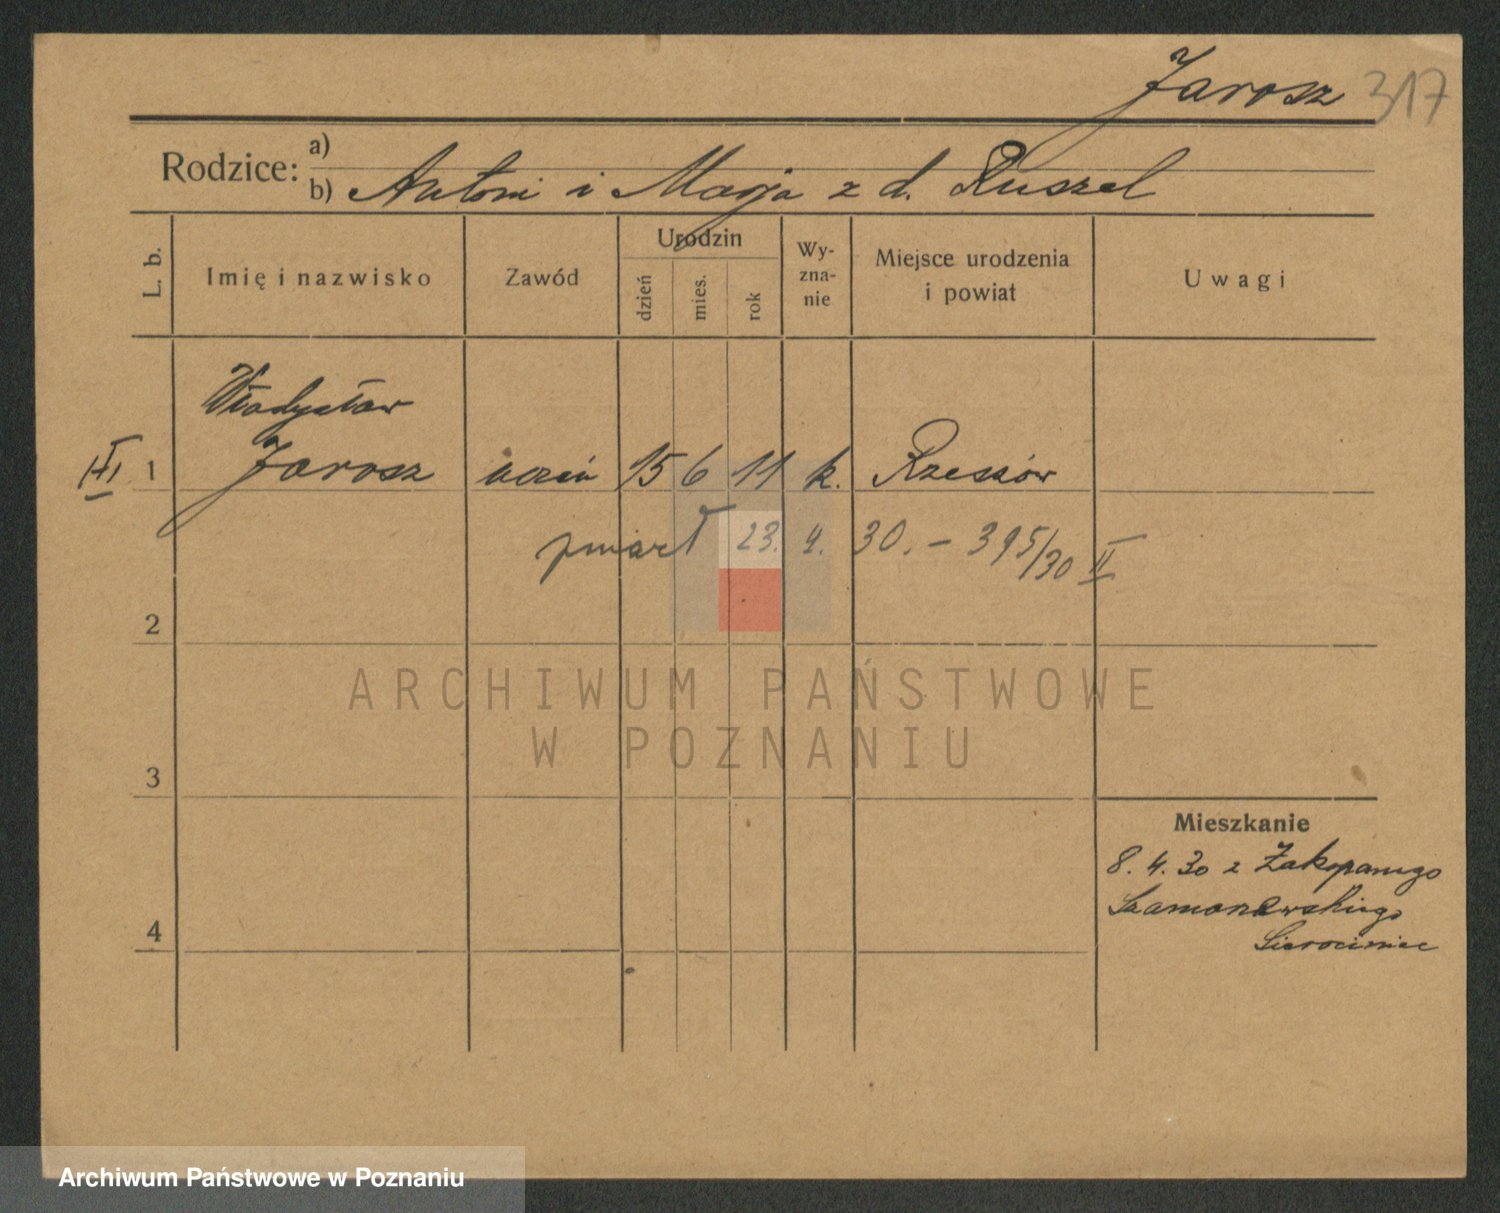 Jarosz 317
Rodzice: a)
b) Antoni i Marja z d. Ruszel
L. b.
Imię i nazwisko
Zawód
Urodzin
dzień
mies.
rok
Wy-
zna-
nie
Miejsce urodzenia
i powiat
Uwagi
Władysław
III 1 Jarosz uczeń 15 6 11 k. Rzeszów
zmarł 23. 4. 30. – 395/30 II
2
ARCHIWUM PAŃSTWOWE
W POZNANIU
3
Mieszkanie
8. 4. 30 z Zakopanego
Szamarzewskiego
Sierociniec
4
Archiwum Państwowe w Poznaniu